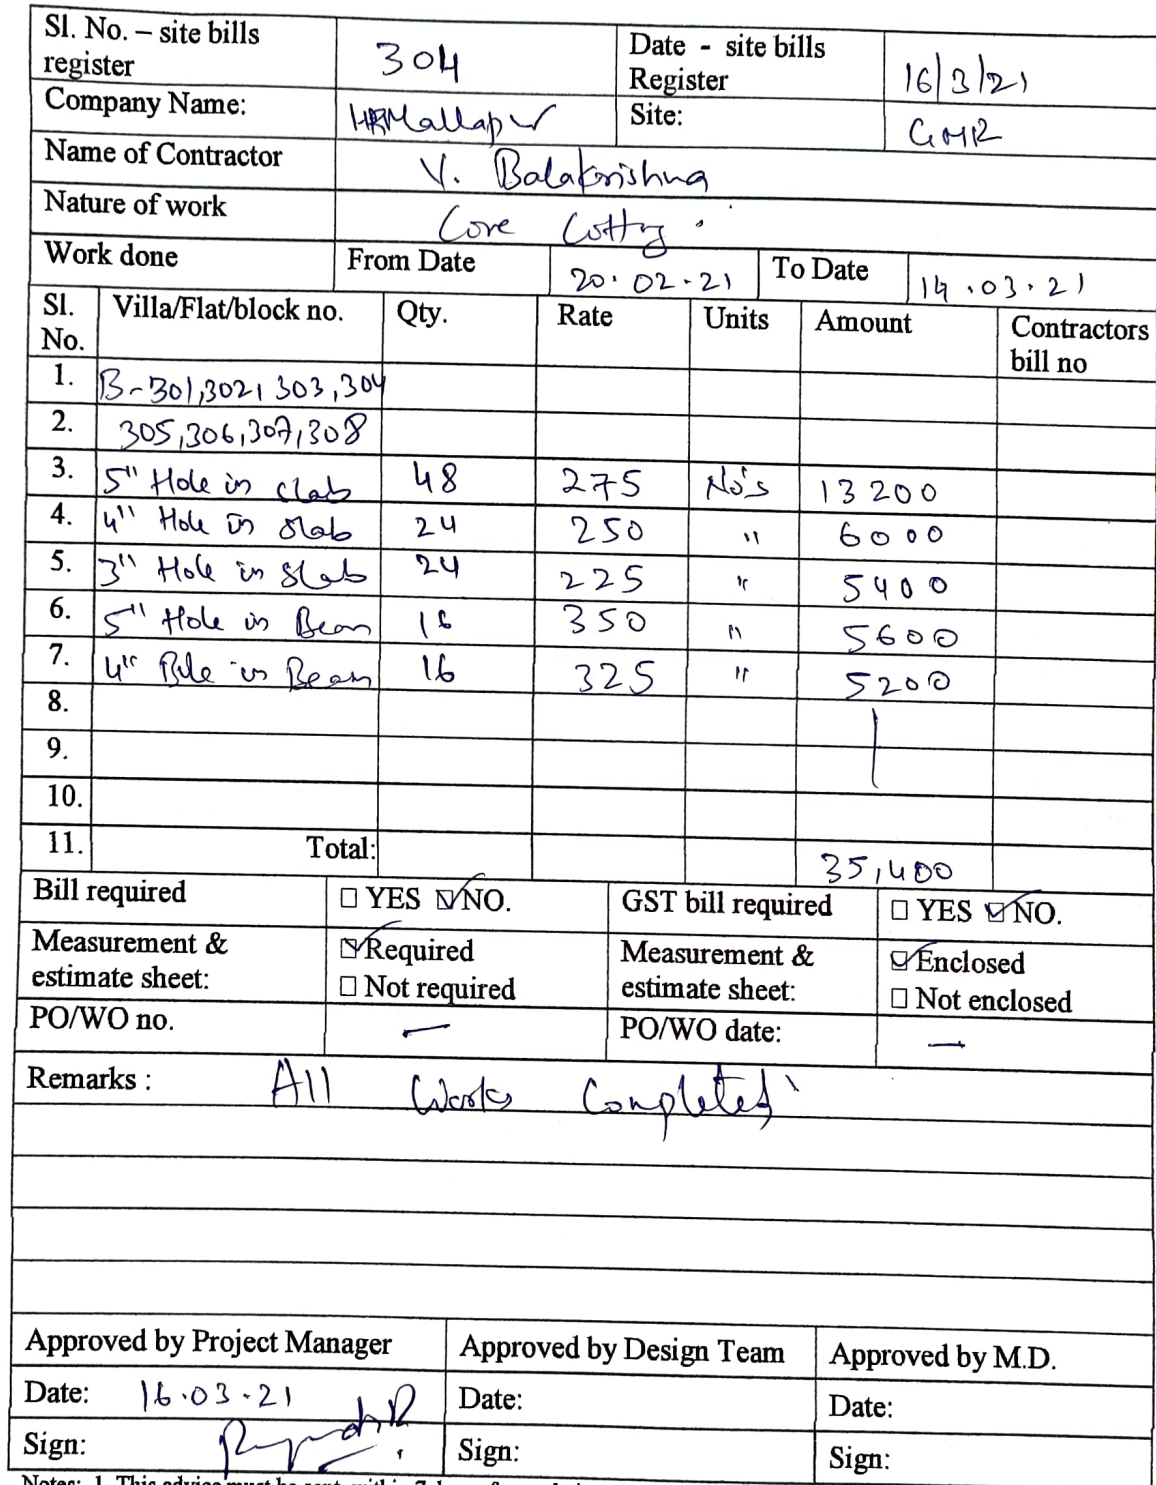 Sl. No. – site bills register 304 Date - site bills Register 16/3/21
Company Name: Mallapur Site: GMR
Name of Contractor V. Balakrishna
Nature of work Core Cotting
Work done From Date 20.02.21 To Date 14.03.21
Sl. No. Villa/Flat/block no. Qty. Rate Units Amount Contractors bill no
1. B-301,302,303,304
2. 305,306,307,308
3. 5" Hole in slab 48 275 No's 13200
4. 4" Hole in slab 24 250 " 6000
5. 3" Hole in slab 24 225 " 5400
6. 5" Hole in Beam 16 350 " 5600
7. 4" in Beam 16 325 " 5200
8.
9.
10.
11. Total: 35,400
Bill required ☐ YES ☑ NO. GST bill required ☐ YES ☑ NO.
Measurement & estimate sheet: ☑ Required ☐ Not required Measurement & estimate sheet: ☑ Enclosed ☐ Not enclosed
PO/WO no. – PO/WO date: –
Remarks : All Works Completed
Approved by Project Manager Approved by Design Team Approved by M.D.
Date: 16.03.21 Date: Date:
Sign: Sign: Sign:
Notes: 1. This advice must be sent within 7 days